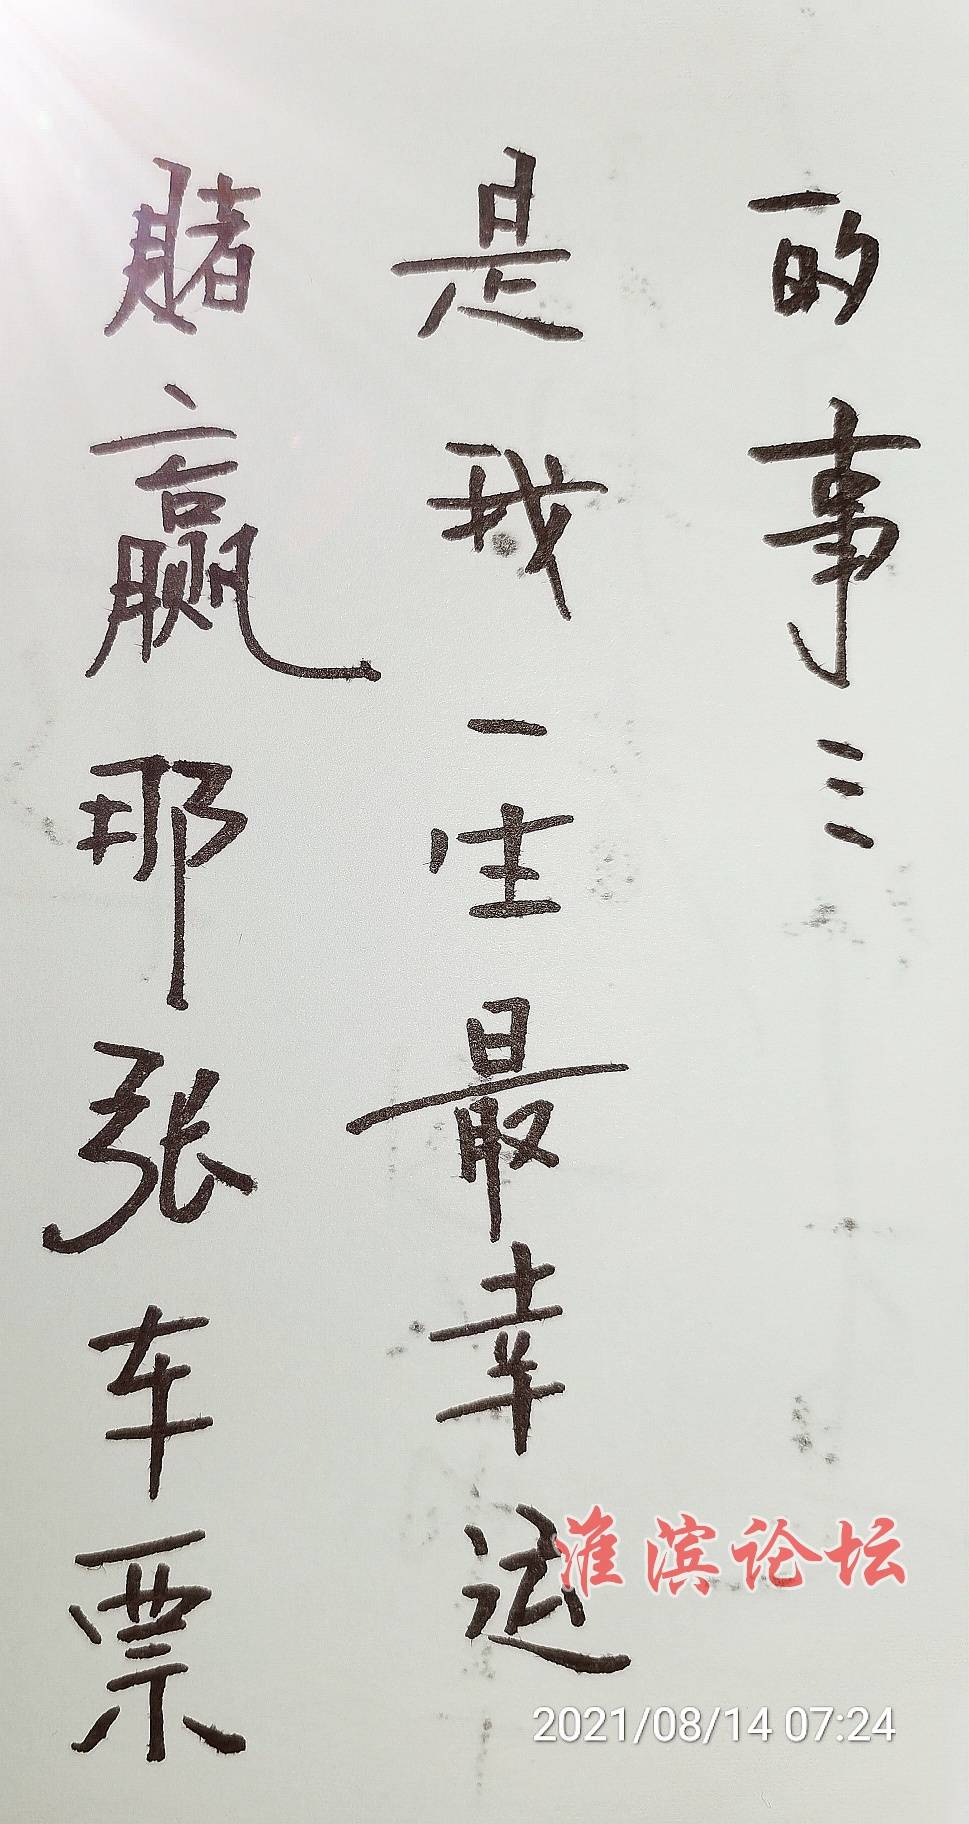 赌赢那张车票
是我一生最幸运
的事…
淮滨论坛
2021/08/14 07:24